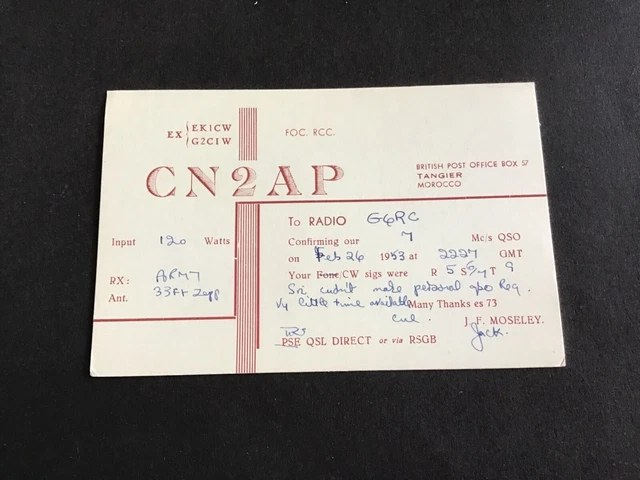 EX { EK1CW
G2CIW
FOC. RCC.
CN2AP
BRITISH POST OFFICE BOX 57
TANGIER
MOROCCO
To RADIO G6RC
Confirming our 7 Mc/s QSO
on Feb 26 1953 at 2227 GMT
Your Fone/CW sigs were R 5 S 6/7 T 9
Sri cudn't make personal qso Req.
Vy little time available Many Thanks es 73
Cul. J. F. MOSELEY.
Jack.
PSE QSL DIRECT or via RSGB
Input 120 Watts
RX: ARMY
Ant. 33 FT Zepp